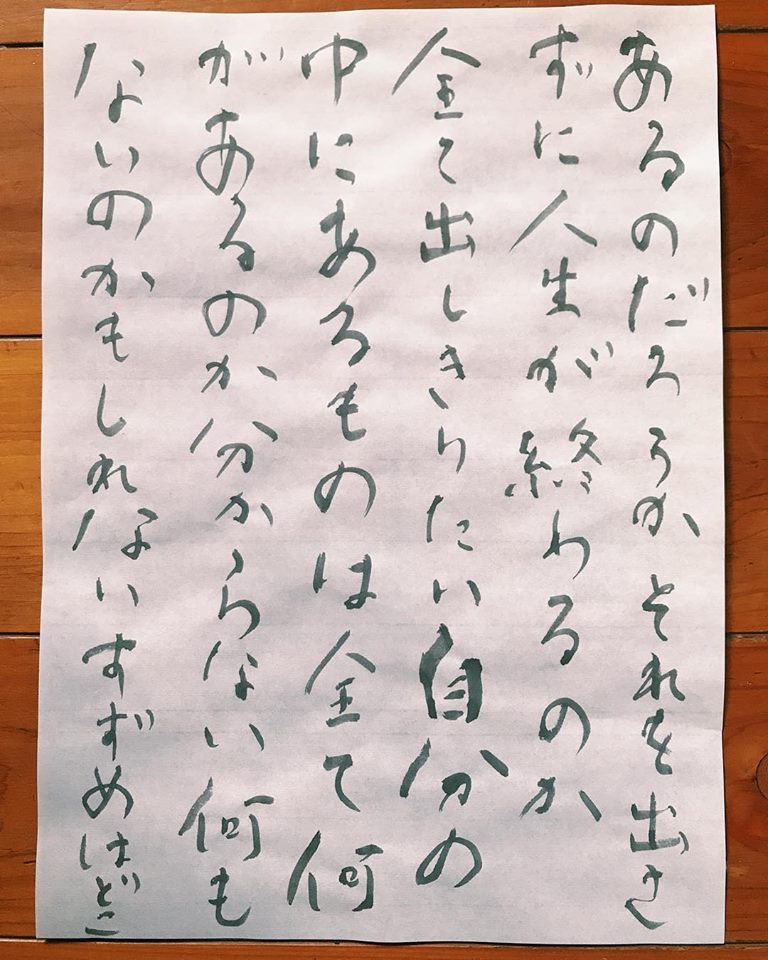 あるのだろうかそれを出さ
ずに人生が終わるのか
全て出しきりたい自分の
中にあるものは全て何
があるのか分からない何も
ないのかもしれないすずめはどこ